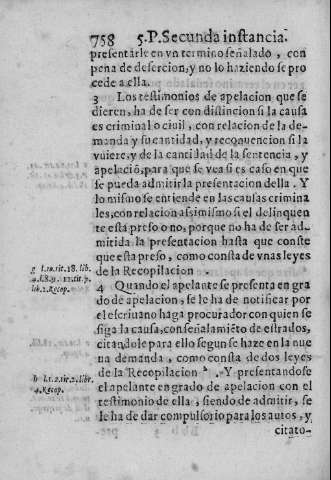 758 5. P. Secunda instancia.
presentarle en vn termino señalado, con
pena de desercion, y no lo haziendo se pro
cede a ella.
3 Los testimonios de apelacion que se
dieren, ha de ser con distincion si la causa
es criminal o civil, con relacion de la de-
manda y su cantidad, y reconuencion si la
vuiere, y de la cantidad de la sentencia, y
apelaciõ, para que se vea si es caso en que
se pueda admitir la presentacion della. Y
lo mismo se entiende en las causas crimina
les, con relacion assimismo si el delinquen
te està preso o no, porque no ha de ser ad-
mitida la presentacion hasta que conste
que esta preso, como consta de vnas leyes
de la Recopilacion .
g l.10.tit.18. lib.
4.l.8.y. 12.tit.7.
lib.2.Recop.
4 Quando el apelante se presenta en gra
do de apelacion, se le ha de notificar por
el escriuano haga procurador con quien se
siga la causa, con señalamiẽto de estrados,
citandole para ello segun se haze en la nue
ua demanda, como consta de dos leyes
de la Recopilacion h. Y presentandose
el apelante en grado de apelacion con el
testimonio de ella, siendo de admitir, se
le ha de dar compulsorio para los autos, y
h l.1.2.tit.2.libr.
4.Recop.
citato-